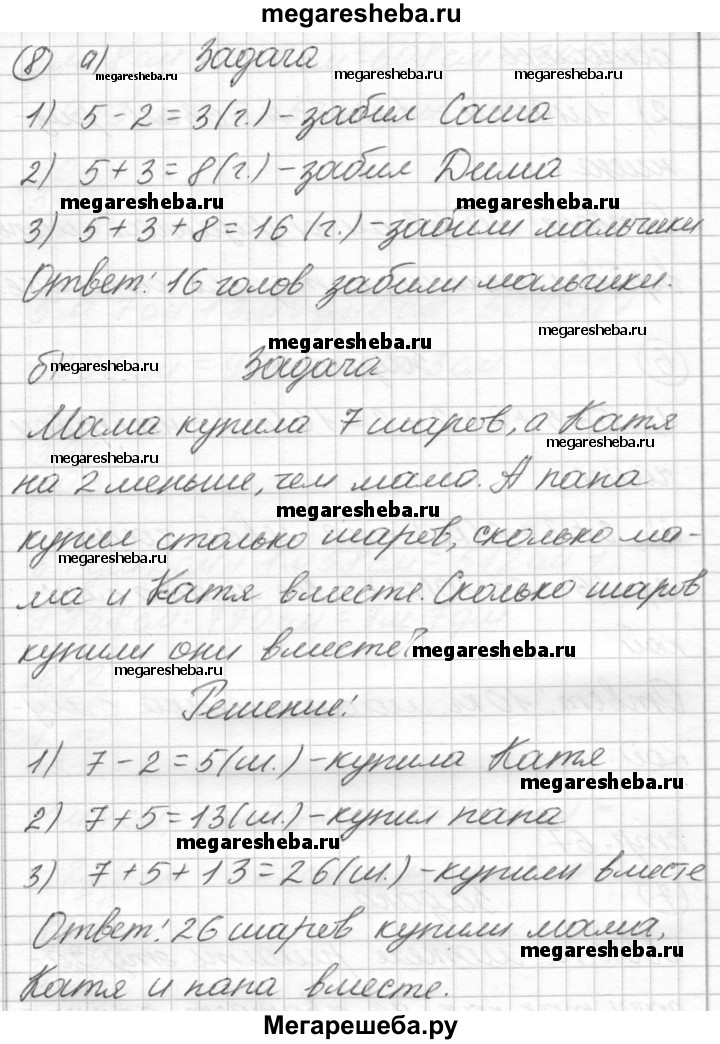 megaresheba.ru
8 а) Задача
megaresheba.ru megaresheba.ru megaresheba.ru
1) 5 - 2 = 3 (г.) - забил Саша
2) 5 + 3 = 8 (г.) - забил Дима
megaresheba.ru megaresheba.ru
3) 5 + 3 + 8 = 16 (г.) - забили мальчики
Ответ: 16 голов забили мальчики.
megaresheba.ru megaresheba.ru
б) Задача
megaresheba.ru
Мама купила 7 шаров, а Катя
megaresheba.ru megaresheba.ru
на 2 меньше, чем мама. А папа
megaresheba.ru
купил столько шаров, сколько ма-
megaresheba.ru
ма и Катя вместе. Сколько шаров
купили они вместе?
megaresheba.ru megaresheba.ru
Решение:
1) 7 - 2 = 5 (ш.) - купила Катя
megaresheba.ru
2) 7 + 5 = 13 (ш.) - купил папа
megaresheba.ru
3) 7 + 5 + 13 = 26 (ш.) - купили вместе
Ответ: 26 шаров купили мама,
megaresheba.ru
Катя и папа вместе.
Мегарешеба.ру